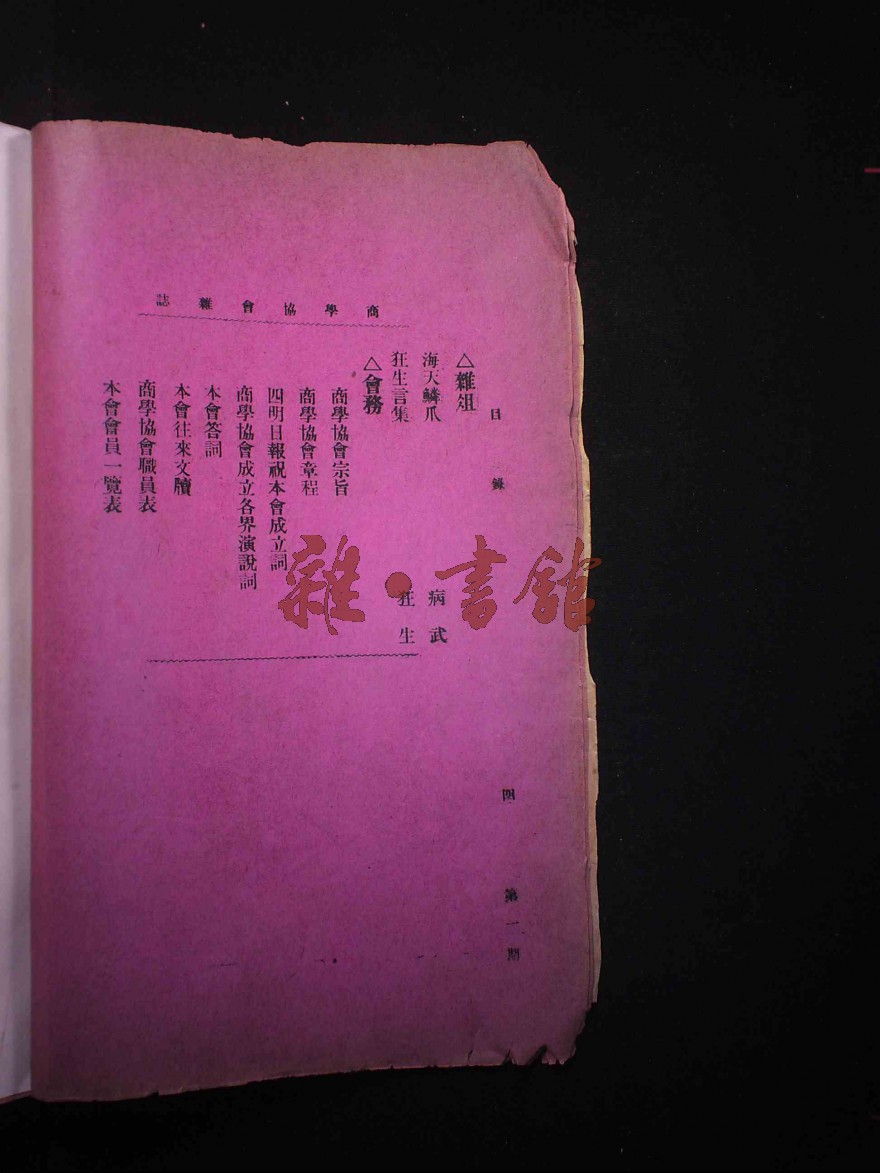 商學協會雜誌
目錄
四
第一期
△雜俎
海天鱗爪 病武
狂生言集 狂生
△會務
商學協會宗旨
商學協會章程
四明日報祝本會成立詞
商學協會成立各界演說詞
本會答詞
本會往來文牘
商學協會職員表
本會會員一覽表
雜·書館